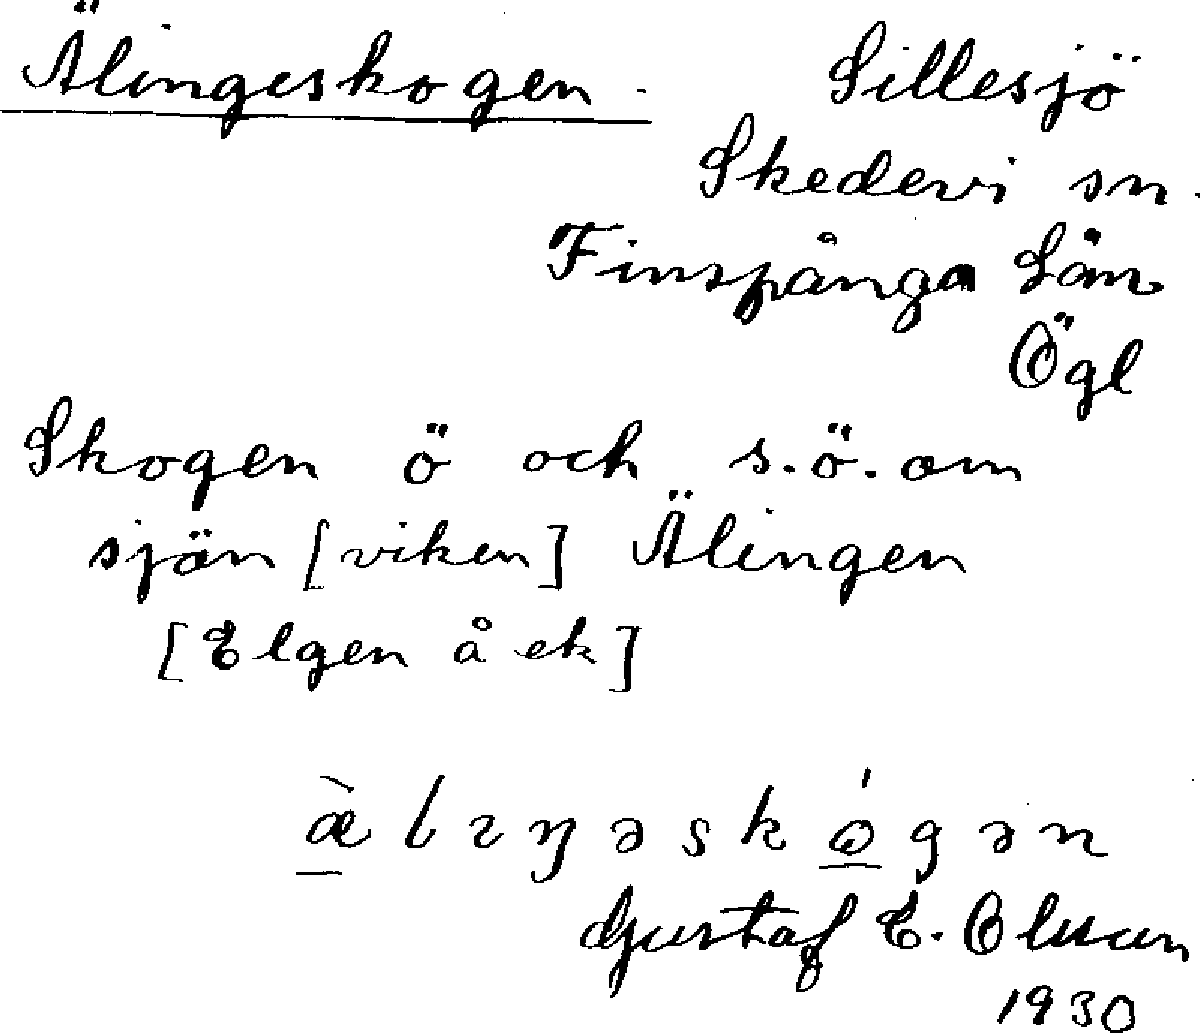 Älingeskogen. Sillesjö
Skedevi sn.
Finspånga Län
Ögl
Skogen ö och s.ö. om
sjön [viken] Älingen
[Elgen å ek]
æ̀lıŋəskó̱gən
Gustaf E. Olsson
1930